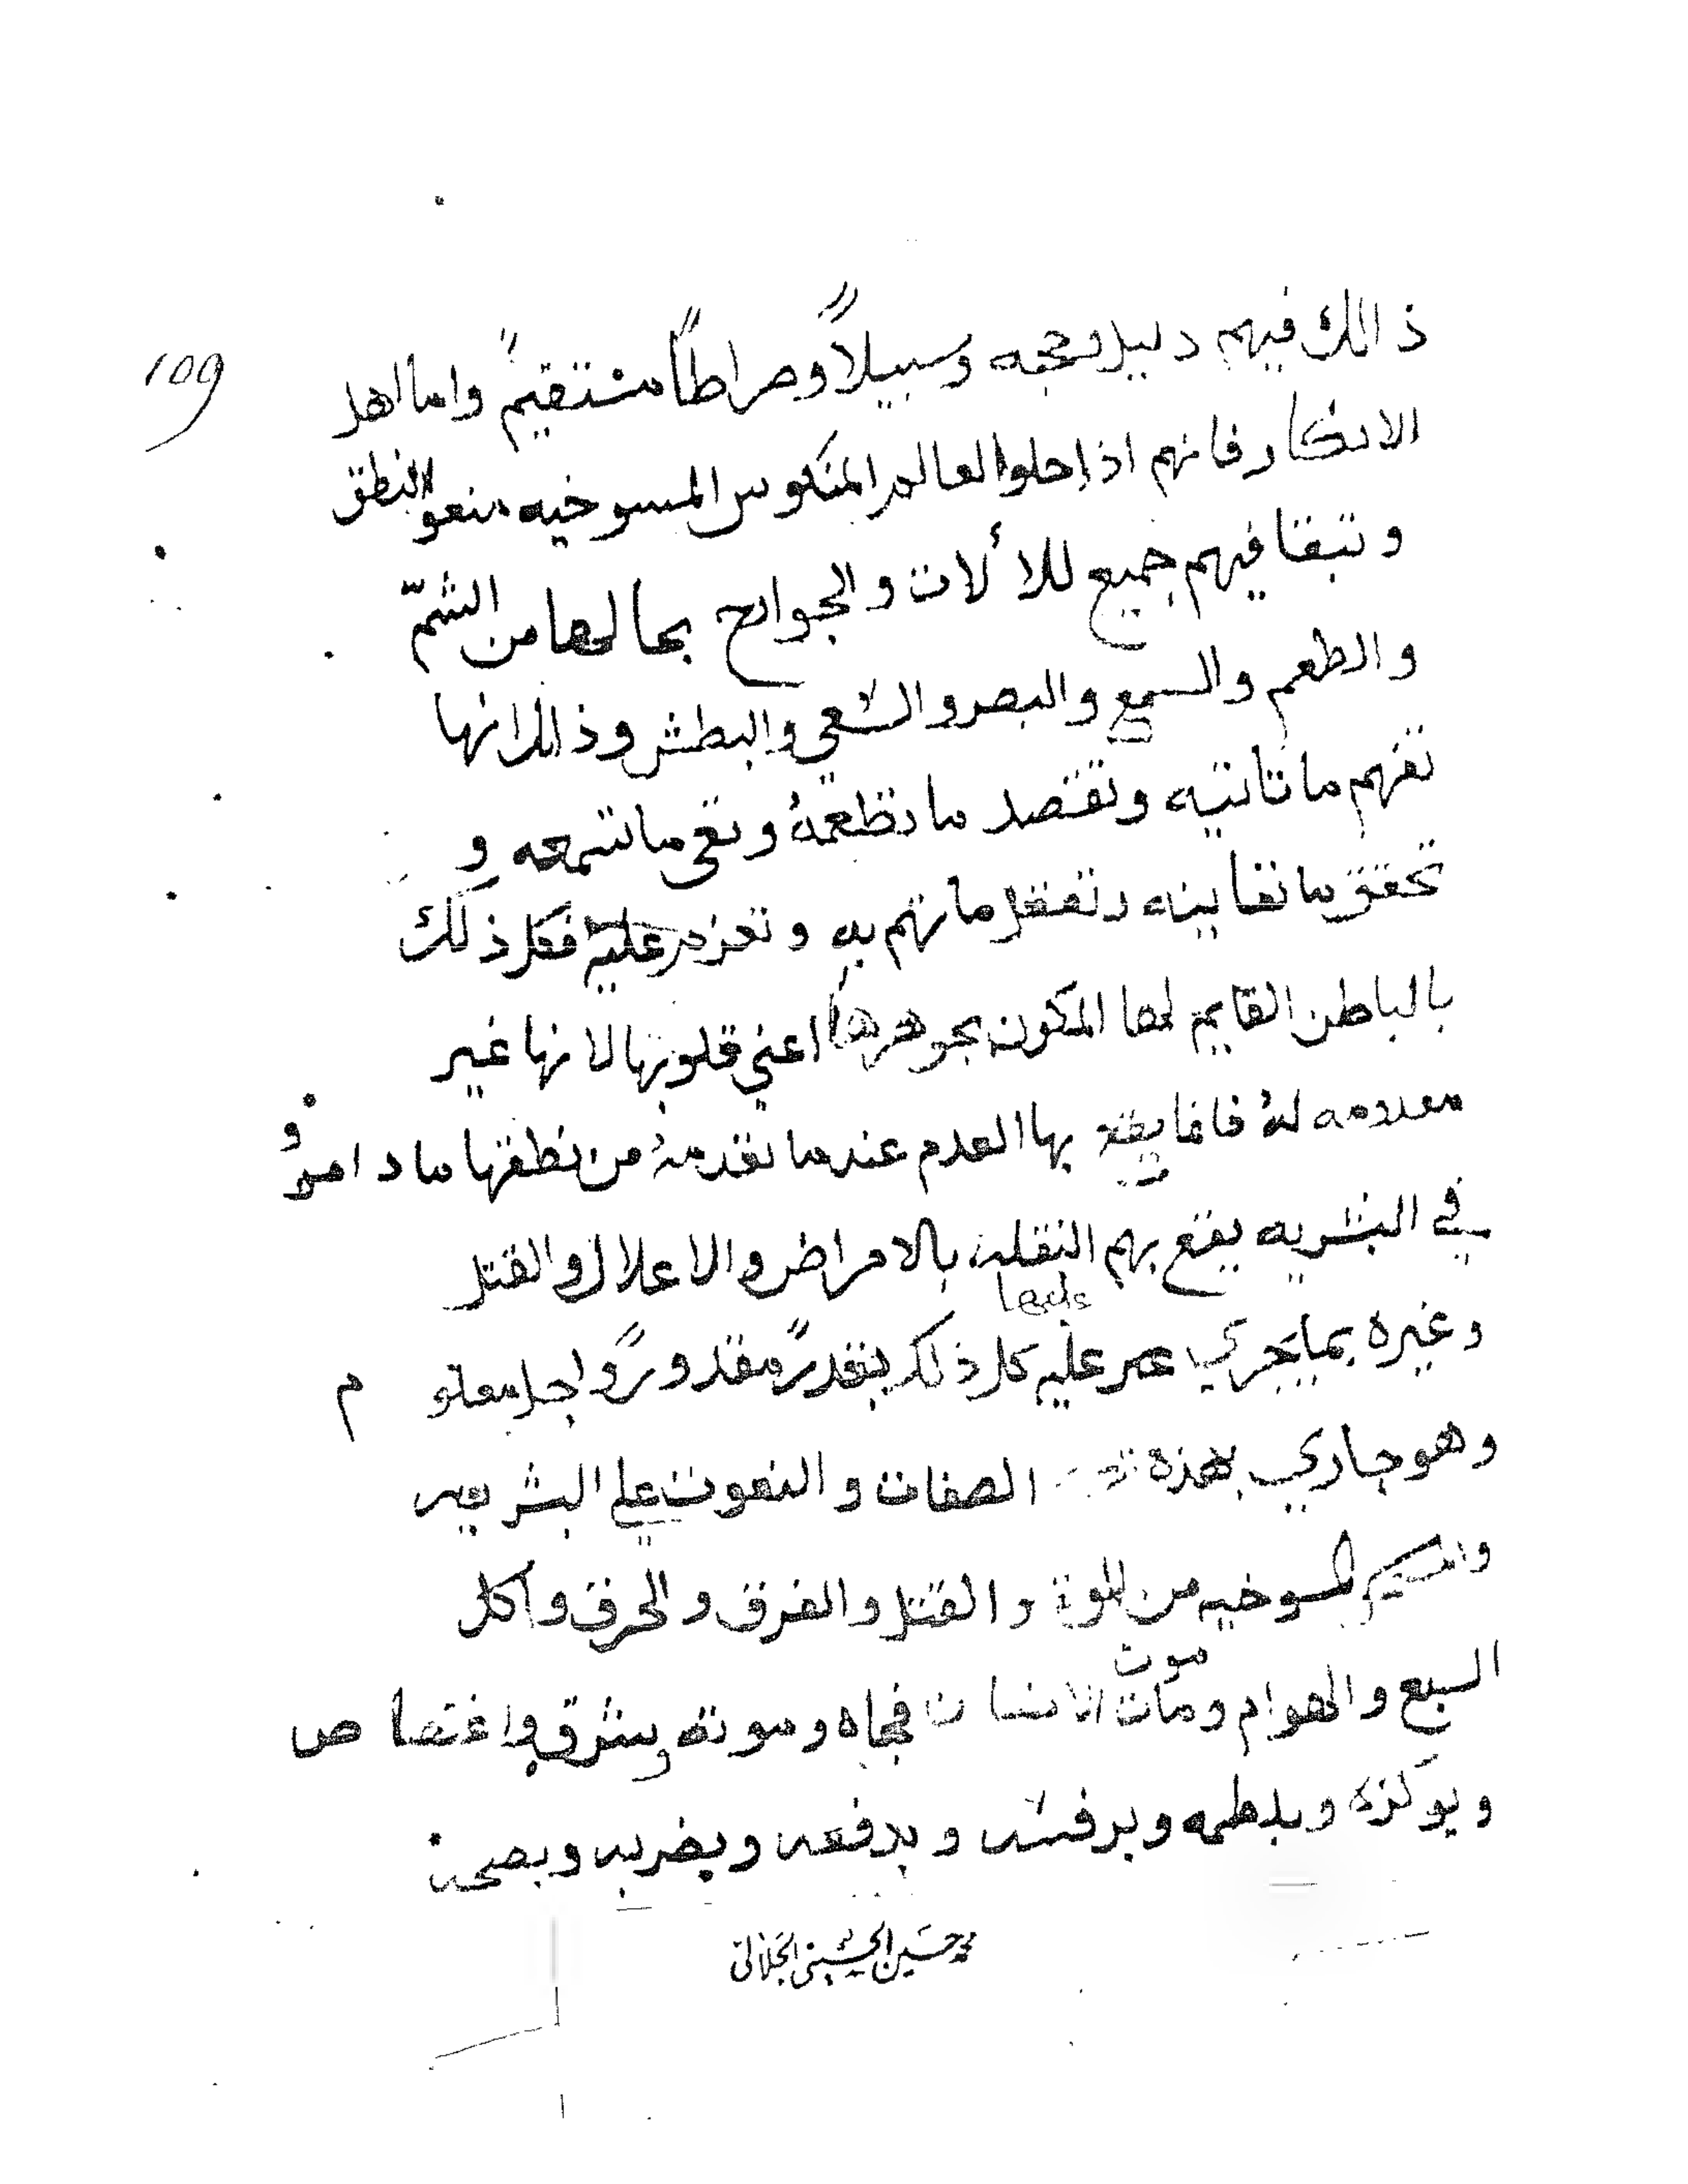 109
ذالك فيهم دليل وحجه وسبيلاً وصراطاً منستقيمً واما اهل
الانكار فانهم اذا حلوا العالم المنكوس المسوخيه منعوا النطق
و تبقا فيهم جميع للألات والجوارح بحالها من الشمّ
والطعم والسمع والبصر والسعي والبطش وذالك انها
تفهم ما تاتيه وتقصد ما تطعمهُ وتعي ما تسمعه و
تحقق ما تعاينه وتعقل ما تهم به وتعزم عليه فكل ذلك
بالباطن القايم لها المكون بجوهرها اعني قلوبها لانها غير
معدومه لهُ فانما يقع بها العدم عندما تقدمهُ من نطقها ما داموا و
في البشريه يقع بهم النقله بالامراض والاعلال والقتل
وغيره بما يجري عليها عليه كل ذلك بتقديرً مقدورً واجل معلوم
وهو جاري بهذه الصفات والنعوت علي البشريه
المسوخيه من و القتل والغرق والحرق واكل
السبع والهوام ومات موت الانسان فجاه وموته وبشرق واغتصاص
ويوكزه ويلطمه ويرفسه ويدفعه ويضربه
محمد حسين الحسيني الجلالي